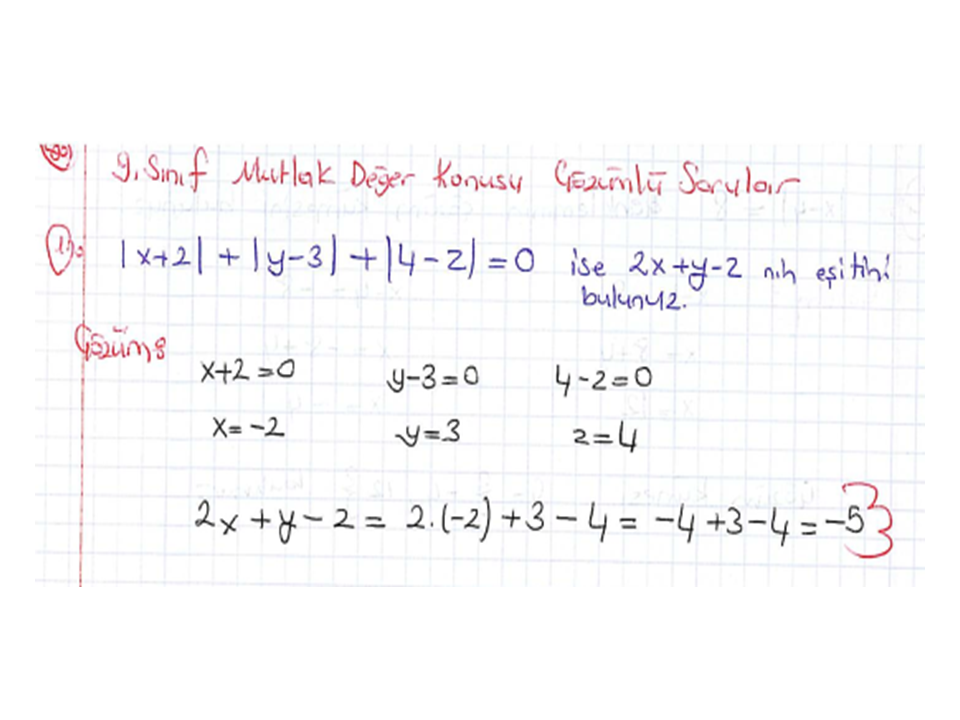 9. Sınıf Mutlak Değer Konusu Çözümlü Sorular
1). |x+2| + |y-3| + |4-z| = 0 ise 2x+y-z nin eşitini
bulunuz.
Çözüm:
x+2=0 y-3=0 4-z=0
x=-2 y=3 z=4
2x+y-z = 2.(-2)+3-4 = -4+3-4 = -5